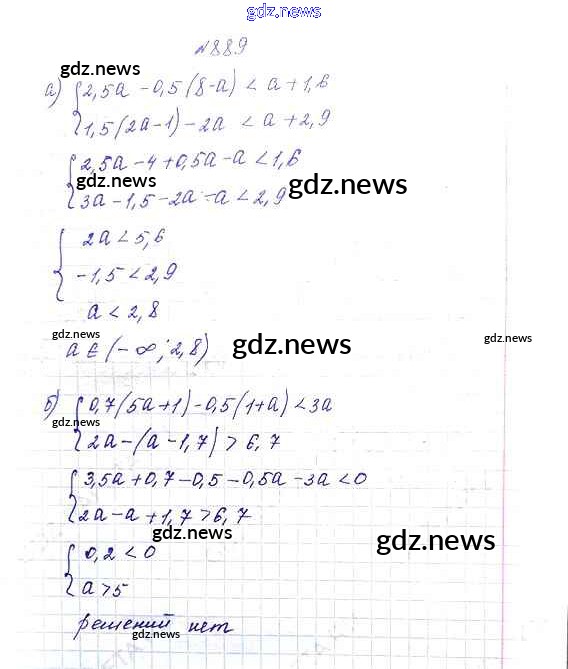 gdz.news
№889
gdz.news
а) {2,5a - 0,5(8-a) < a + 1,6
1,5(2a-1) - 2a < a + 2,9
{2,5a - 4 + 0,5a - a < 1,6
gdz.news
gdz.news
3a - 1,5 - 2a - a < 2,9
{2a < 5,6
-1,5 < 2,9
a < 2,8
gdz.news
gdz.news
gdz.news
a ∈ (-∞; 2,8)
б) {0,7(5a+1) - 0,5(1+a) < 3a
gdz.news
2a - (a - 1,7) > 6,7
{3,5a + 0,7 - 0,5 - 0,5a - 3a < 0
2a - a + 1,7 > 6,7
gdz.news
gdz.news
{0,2 < 0
a > 5
решений нет
gdz.news